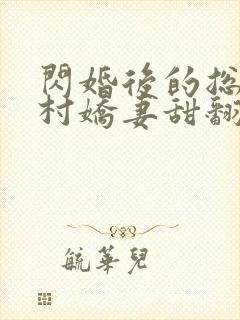 閃婚後的總
村嬌妻甜翻
毓華兒